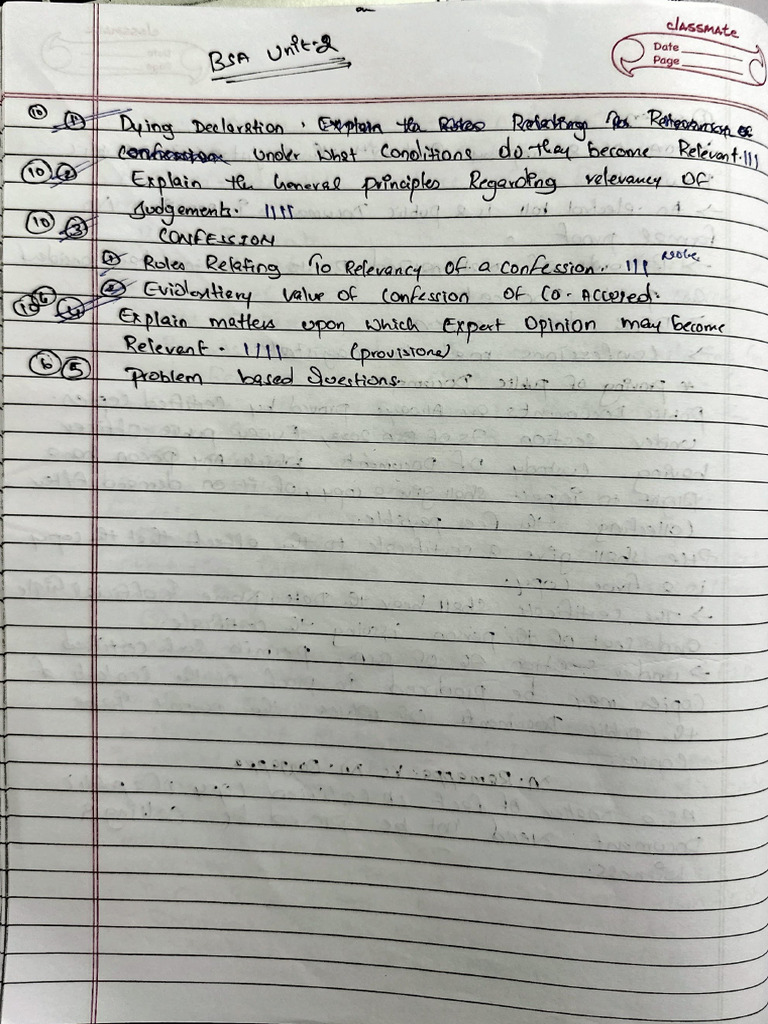 classmate
Date
Page
BSA Unit-2
10 1 Dying Declaration. Explain the Rules Relating To
under what Conditions do they become Relevant. ||||
10 2 Explain the General principles Regarding relevancy OF
Judgements. ||||
10 3 CONFESSION
1 Rules Relating To Relevancy OF a confession. |||
2 Evidentiary value of confession OF Co-Accused.
10 4 Explain matters upon which Expert Opinion may become
Relevant. |||| (provisions)
6 5 Problem based Questions